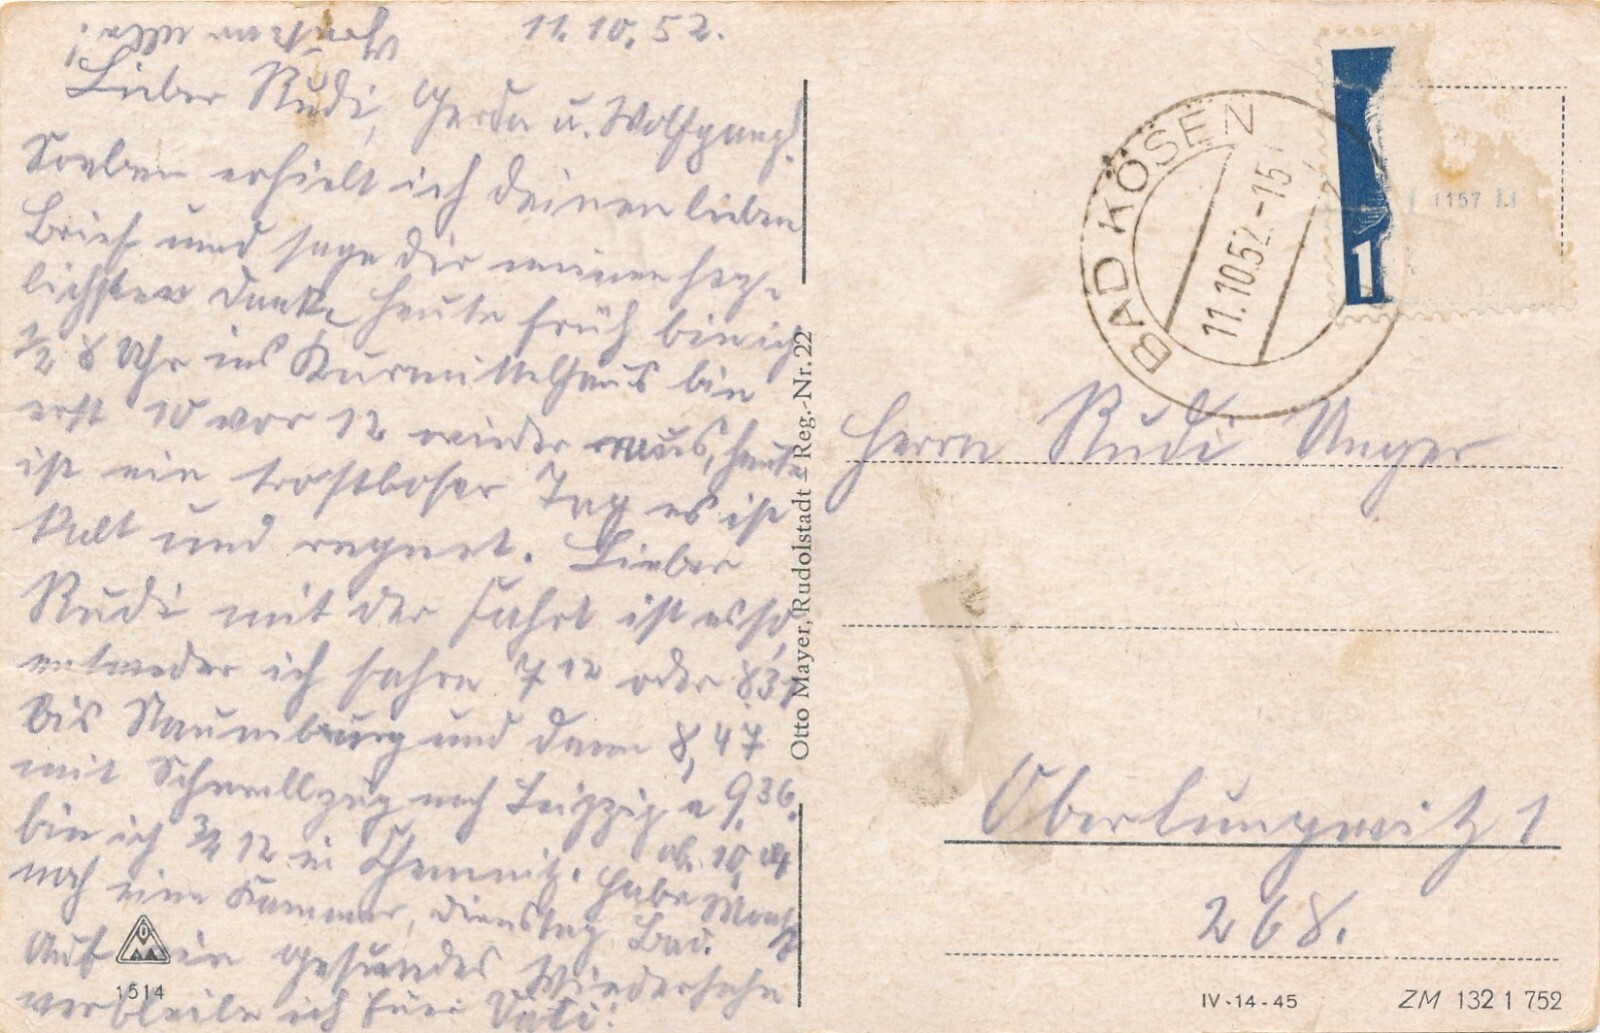 11.10.52.
Lieber Rudi, Gerda u. Wolfgang!
Soeben erhielt ich deinen lieben
Brief und sage dir meinen herz-
lichsten Dank. Heute früh bin ich
1/2 8 Uhr ins Kurmittelhaus bin
erst 10 vor 12 wieder raus, heute
ist ein trostloser Tag es ist
kalt und regnet. Lieber
Rudi mit der Fahrt ist es so,
entweder ich fahre 7 12 oder 8 37
bis Naumburg und dann 8,47
mit Schnellzug nach Leipzig a 9.36.
ab. 10,04
bin ich 3/4 12 in Chemnitz. Habe Montag
noch eine Kammer, Dienstag Bad.
Auf ein gesundes Wiedersehn
verbleibe ich Euer Vati!
Grüße an alle!
1514
Otto Mayer, Rudolstadt – Reg.-Nr. 22
BAD KÖSEN
11.10.52.-15
1
1157
Herrn Rudi Unger
Oberlungwitz 1
268.
IV-14-45
ZM 132 1 752